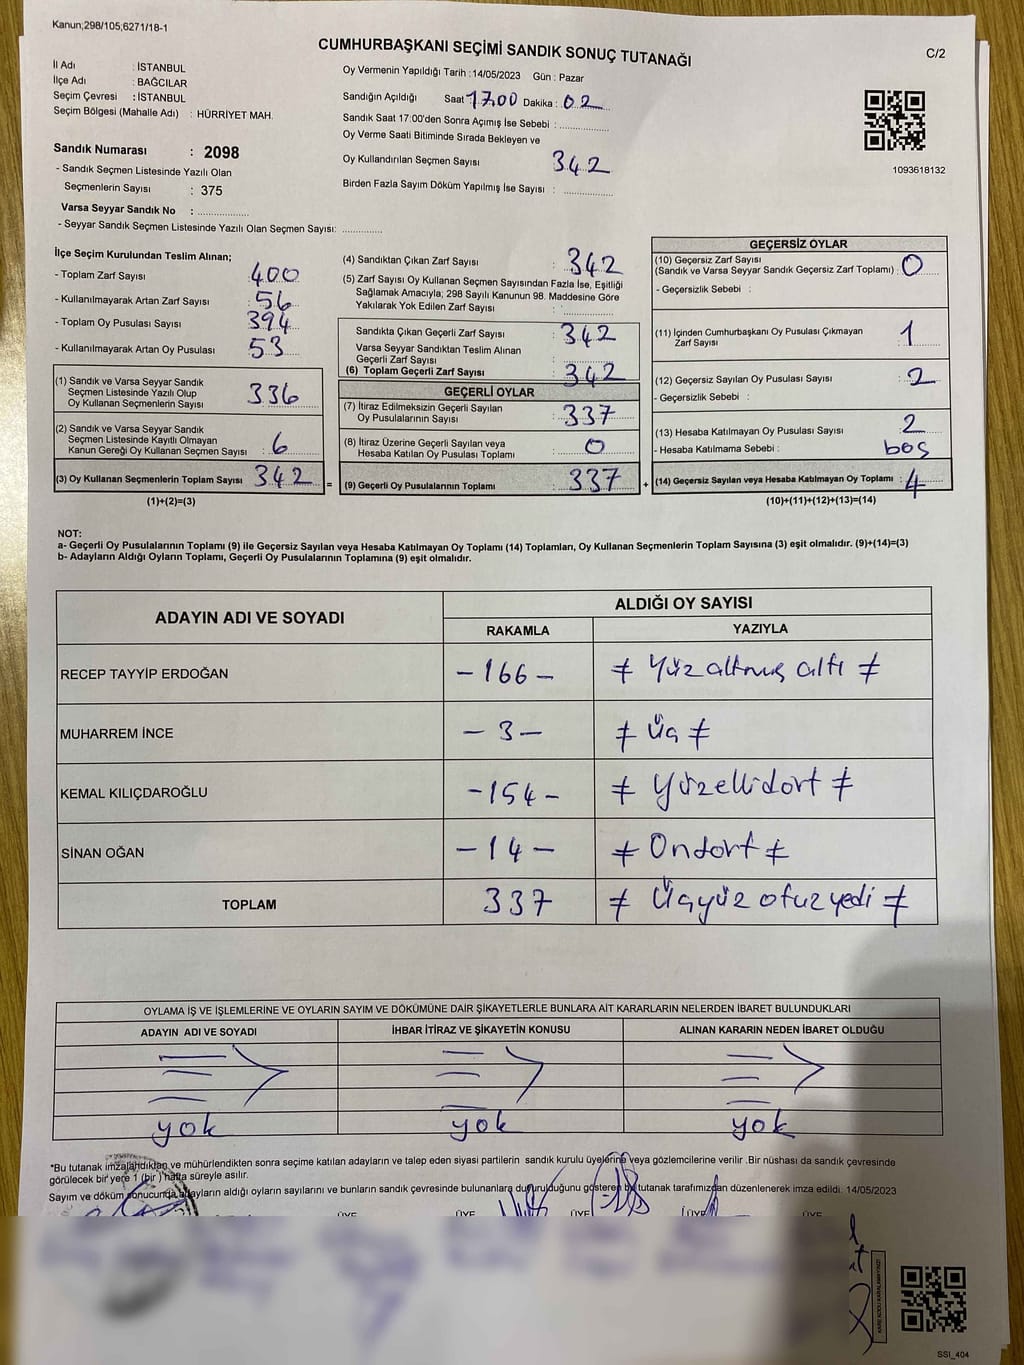 Kanun;298/105;6271/18-1
CUMHURBAŞKANI SEÇİMİ SANDIK SONUÇ TUTANAĞI
C/2
İl Adı : İSTANBUL
İlçe Adı : BAĞCILAR
Seçim Çevresi : İSTANBUL
Seçim Bölgesi (Mahalle Adı) : HÜRRİYET MAH.
Sandık Numarası : 2098
- Sandık Seçmen Listesinde Yazılı Olan
Seçmenlerin Sayısı : 375
Varsa Seyyar Sandık No : ................
- Seyyar Sandık Seçmen Listesinde Yazılı Olan Seçmen Sayısı: .............
Oy Vermenin Yapıldığı Tarih : 14/05/2023 Gün : Pazar
Sandığın Açıldığı Saat 17.00 Dakika : 02
Sandık Saat 17:00'den Sonra Açımış İse Sebebi : ...............
Oy Verme Saati Bitiminde Sırada Bekleyen ve
Oy Kullandırılan Seçmen Sayısı 342
Birden Fazla Sayım Döküm Yapılmış İse Sayısı : ...............
1093618132
İlçe Seçim Kurulundan Teslim Alınan;
- Toplam Zarf Sayısı : 400
- Kullanılmayarak Artan Zarf Sayısı : 56
- Toplam Oy Pusulası Sayısı : 394
- Kullanılmayarak Artan Oy Pusulası : 53
(1) Sandık ve Varsa Seyyar Sandık
Seçmen Listesinde Yazılı Olup
Oy Kullanan Seçmenlerin Sayısı : 336
(2) Sandık ve Varsa Seyyar Sandık
Seçmen Listesinde Kayıtlı Olmayan
Kanun Gereği Oy Kullanan Seçmen Sayısı : 6
(3) Oy Kullanan Seçmenlerin Toplam Sayısı : 342 =
(1)+(2)=(3)
(4) Sandıktan Çıkan Zarf Sayısı : 342
(5) Zarf Sayısı Oy Kullanan Seçmen Sayısından Fazla İse, Eşitliği
Sağlamak Amacıyla; 298 Sayılı Kanunun 98. Maddesine Göre
Yakılarak Yok Edilen Zarf Sayısı : ...............
Sandıkta Çıkan Geçerli Zarf Sayısı : 342
Varsa Seyyar Sandıktan Teslim Alınan
Geçerli Zarf Sayısı
(6) Toplam Geçerli Zarf Sayısı : 342
GEÇERLİ OYLAR
(7) İtiraz Edilmeksizin Geçerli Sayılan
Oy Pusulalarının Sayısı : 337
(8) İtiraz Üzerine Geçerli Sayılan veya
Hesaba Katılan Oy Pusulası Toplamı : 0
(9) Geçerli Oy Pusulalarının Toplamı : 337 +
GEÇERSİZ OYLAR
(10) Geçersiz Zarf Sayısı
(Sandık ve Varsa Seyyar Sandık Geçersiz Zarf Toplamı) : 0
- Geçersizlik Sebebi :
(11) İçinden Cumhurbaşkanı Oy Pusulası Çıkmayan
Zarf Sayısı : 1
(12) Geçersiz Sayılan Oy Pusulası Sayısı : 2
- Geçersizlik Sebebi :
(13) Hesaba Katılmayan Oy Pusulası Sayısı : 2
- Hesaba Katılmama Sebebi : boş
(14) Geçersiz Sayılan veya Hesaba Katılmayan Oy Toplamı : 4
(10)+(11)+(12)+(13)=(14)
NOT:
a- Geçerli Oy Pusulalarının Toplamı (9) ile Geçersiz Sayılan veya Hesaba Katılmayan Oy Toplamı (14) Toplamları, Oy Kullanan Seçmenlerin Toplam Sayısına (3) eşit olmalıdır. (9)+(14)=(3)
b- Adayların Aldığı Oyların Toplamı, Geçerli Oy Pusulalarının Toplamına (9) eşit olmalıdır.
ADAYIN ADI VE SOYADI ALDIĞI OY SAYISI
RAKAMLA YAZIYLA
RECEP TAYYİP ERDOĞAN - 166 - ≠ Yüzaltmış altı ≠
MUHARREM İNCE - 3 - ≠ Üç ≠
KEMAL KILIÇDAROĞLU - 154 - ≠ Yüzellidört ≠
SİNAN OĞAN - 14 - ≠ Ondort ≠
TOPLAM 337 ≠ Üçyüz otuz yedi ≠
OYLAMA İŞ VE İŞLEMLERİNE VE OYLARIN SAYIM VE DÖKÜMÜNE DAİR ŞİKAYETLERLE BUNLARA AİT KARARLARIN NELERDEN İBARET BULUNDUKLARI
ADAYIN ADI VE SOYADI İHBAR İTİRAZ VE ŞİKAYETİN KONUSU ALINAN KARARIN NEDEN İBARET OLDUĞU
yok yok yok
*Bu tutanak imzalandıktan ve mühürlendikten sonra seçime katılan adayların ve talep eden siyasi partilerin sandık kurulu üyelerine veya gözlemcilerine verilir .Bir nüshası da sandık çevresinde
görülecek bir yere 1 (bir ) hafta süreyle asılır.
Sayım ve döküm sonucunda adayların aldığı oyların sayılarını ve bunların sandık çevresinde bulunanlara duyurulduğunu gösteren bu tutanak tarafımızdan düzenlenerek imza edildi. 14/05/2023
ÜYE ÜYE ÜYE ÜYE ÜYE
SSI_404